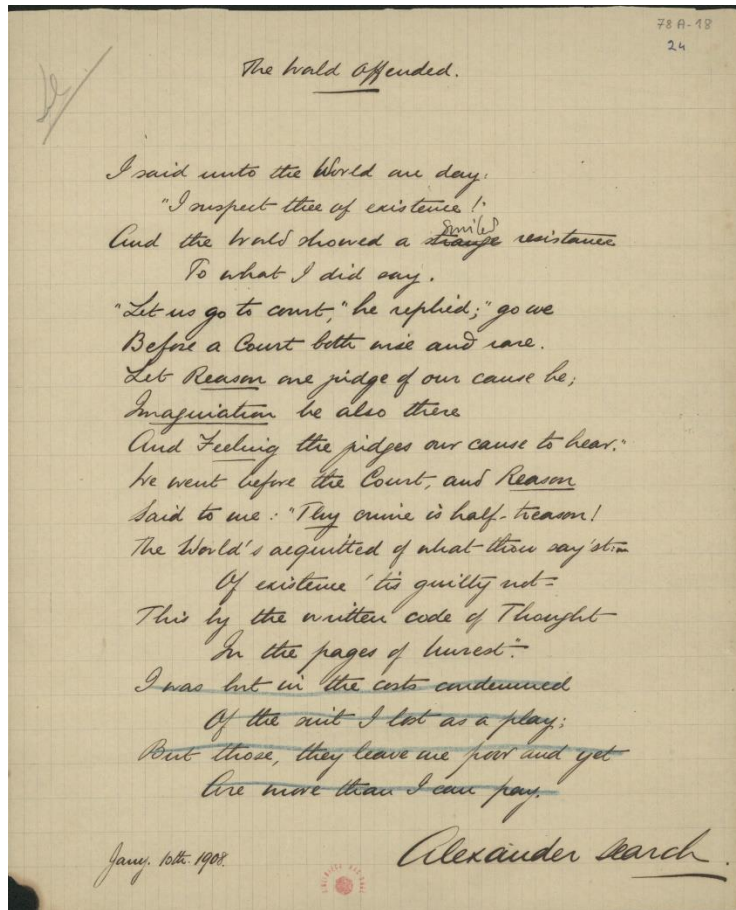 78A-18
24
The World Offended.
I said unto the World one day:
"I suspect thee of existence!"
smiled
And the World showed a strange resistance
To what I did say.
"Let us go to court," he replied; "go we
Before a Court both wise and rare.
Let Reason one judge of our cause be;
Imagination be also there
And Feeling the judges our cause to hear."
We went before the Court, and Reason
Said to me: "Thy crime is half-treason!
The World's acquitted of what thou say'st:—
Of existence 'tis guilty not—
This by the written code of Thought
In the pages of Unrest."
I was but in the costs condemned
Of the suit I lost as a play;
But those, they leave me poor and yet
Are more than I can pay.
Jany. 10th. 1908.
Alexander Search.